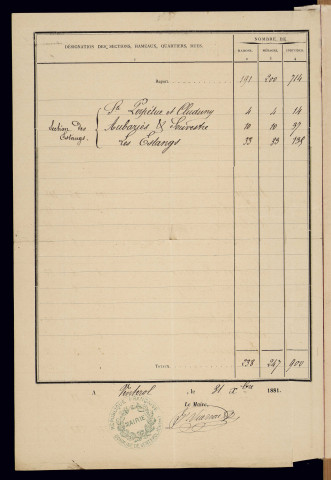 DÉSIGNATION DES SECTIONS, HAMEAUX, QUARTIERS, RUES.
NOMBRE DE
MAISONS. MÉNAGES. INDIVIDUS.
1 2 3 4
Report 191 200 714
Section des Estangs.
St Perpétue et 4 4 14
Aubagnès & 10 10 37
Les Estangs 33 33 135
TOTAUX 238 247 900
A , le 31 Xbre 1881.
Le Maire,
MAIRIE